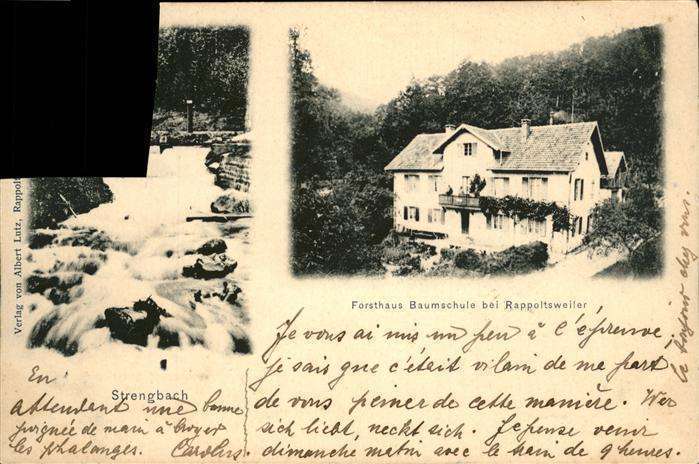 Verlag von Albert Lutz, Rappolt
Forsthaus Baumschule bei Rappoltsweiler
Strengbach
Je vous ai mis un peu à l'épreuve.
je sais que c'était vilain de ma part
de vous peiner de cette manière. Wer
sich liebt, neckt sich. Je pense venir
dimanche matin avec le train de 9 heures.
En
attendant une bonne
poignée de main à broyer
les phalanges. Carolus.
chez vous